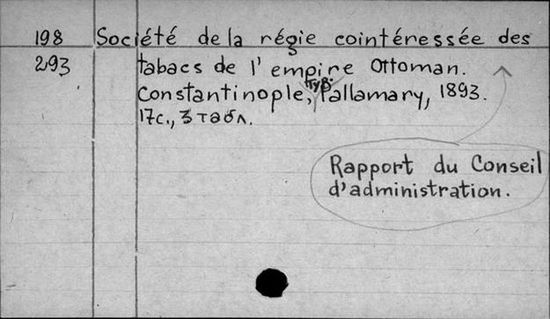 198 Société de la régie cointéressée des
293 tabacs de l' empire Ottoman.
Constantinople, Typ. Pallamary, 1893.
17с., 3 табл.
Rapport du Conseil
d'administration.